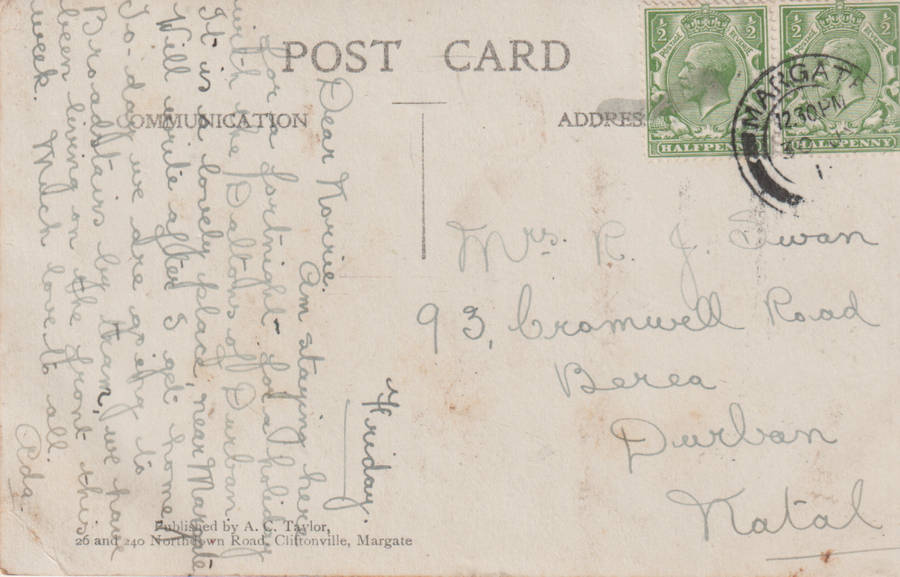 POST CARD
COMMUNICATION
ADDRESS
½ ½
POSTAGE REVENUE
HALFPENNY
½ ½
POSTAGE REVENUE
HALFPENNY
MARGATE
12.30PM
30
Friday.
Dear Norrie.
Am staying here
for a fortnight for a holiday
with the Daltons of Durban.
It is a lovely place, near Margate
Will write after I get home,
To-day we are going to
Broadstairs by tram, we have
been living on the front this
week. Much love to all.
Ada.
Mrs. R. J. Swan
93, Cromwell Road
Berea
Durban
Natal
Published by A. C. Taylor,
26 and 240 Northdown Road, Cliftonville, Margate